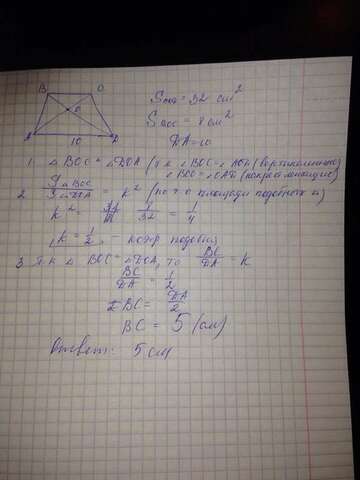 B C
O
A 10 D
S = 32 см²
S BOC = 8 см²
DA = 10
1 △ BOC ~ △ DOA (т.к ∠ BOC = ∠ AOD (вертикальные)
∠ BCO = ∠ OAD (накрест лежащие)
2 S△BOC / S△DOA = k² (по т о площади подобных △)
k² = 8/32 = 1/4
k = 1/2 - коэф подобия
3 Т.К △ BOC ~ △ DOA, то BC/DA = k
BC/DA = 1/2
BC = DA/2
BC = 5 (см)
Ответ: 5 см